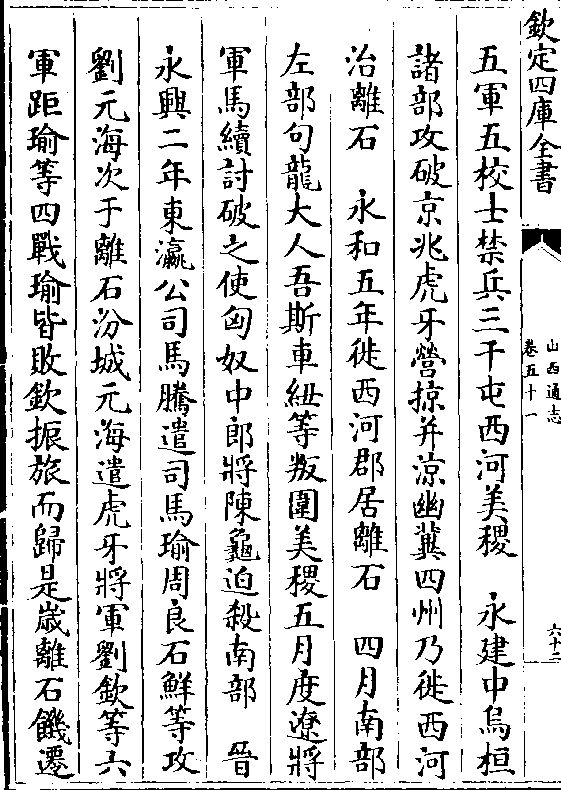 欽定四庫全書
山西通志
卷五十一
六十二
五軍五校士禁兵三千屯西河美稷　永建中烏桓
諸部攻破京兆虎牙營掠并涼幽冀四州乃徙西河
治離石　永和五年徙西河郡居離石　四月南部
左部句龍大人吾斯車紐等叛圍美稷五月度遼將
軍馬續討破之使匈奴中郎將陳龜迫殺南部　晉
永興二年東瀛公司馬騰遣司馬瑜周良石鮮等攻
劉元海次于離石汾城元海遣虎牙將軍劉欽等六
軍距瑜等四戰瑜皆敗欽振旅而歸是歲離石饑遷